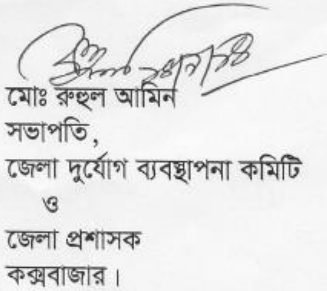 মোঃ রুহুল আমিন
সভাপতি,
জেলা দুর্যোগ ব্যবস্থাপনা কমিটি
ও
জেলা প্রশাসক
কক্সবাজার।